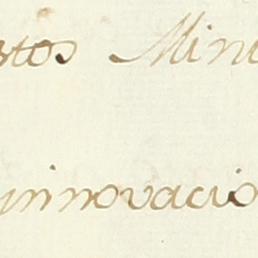 stos Mini
innovacio